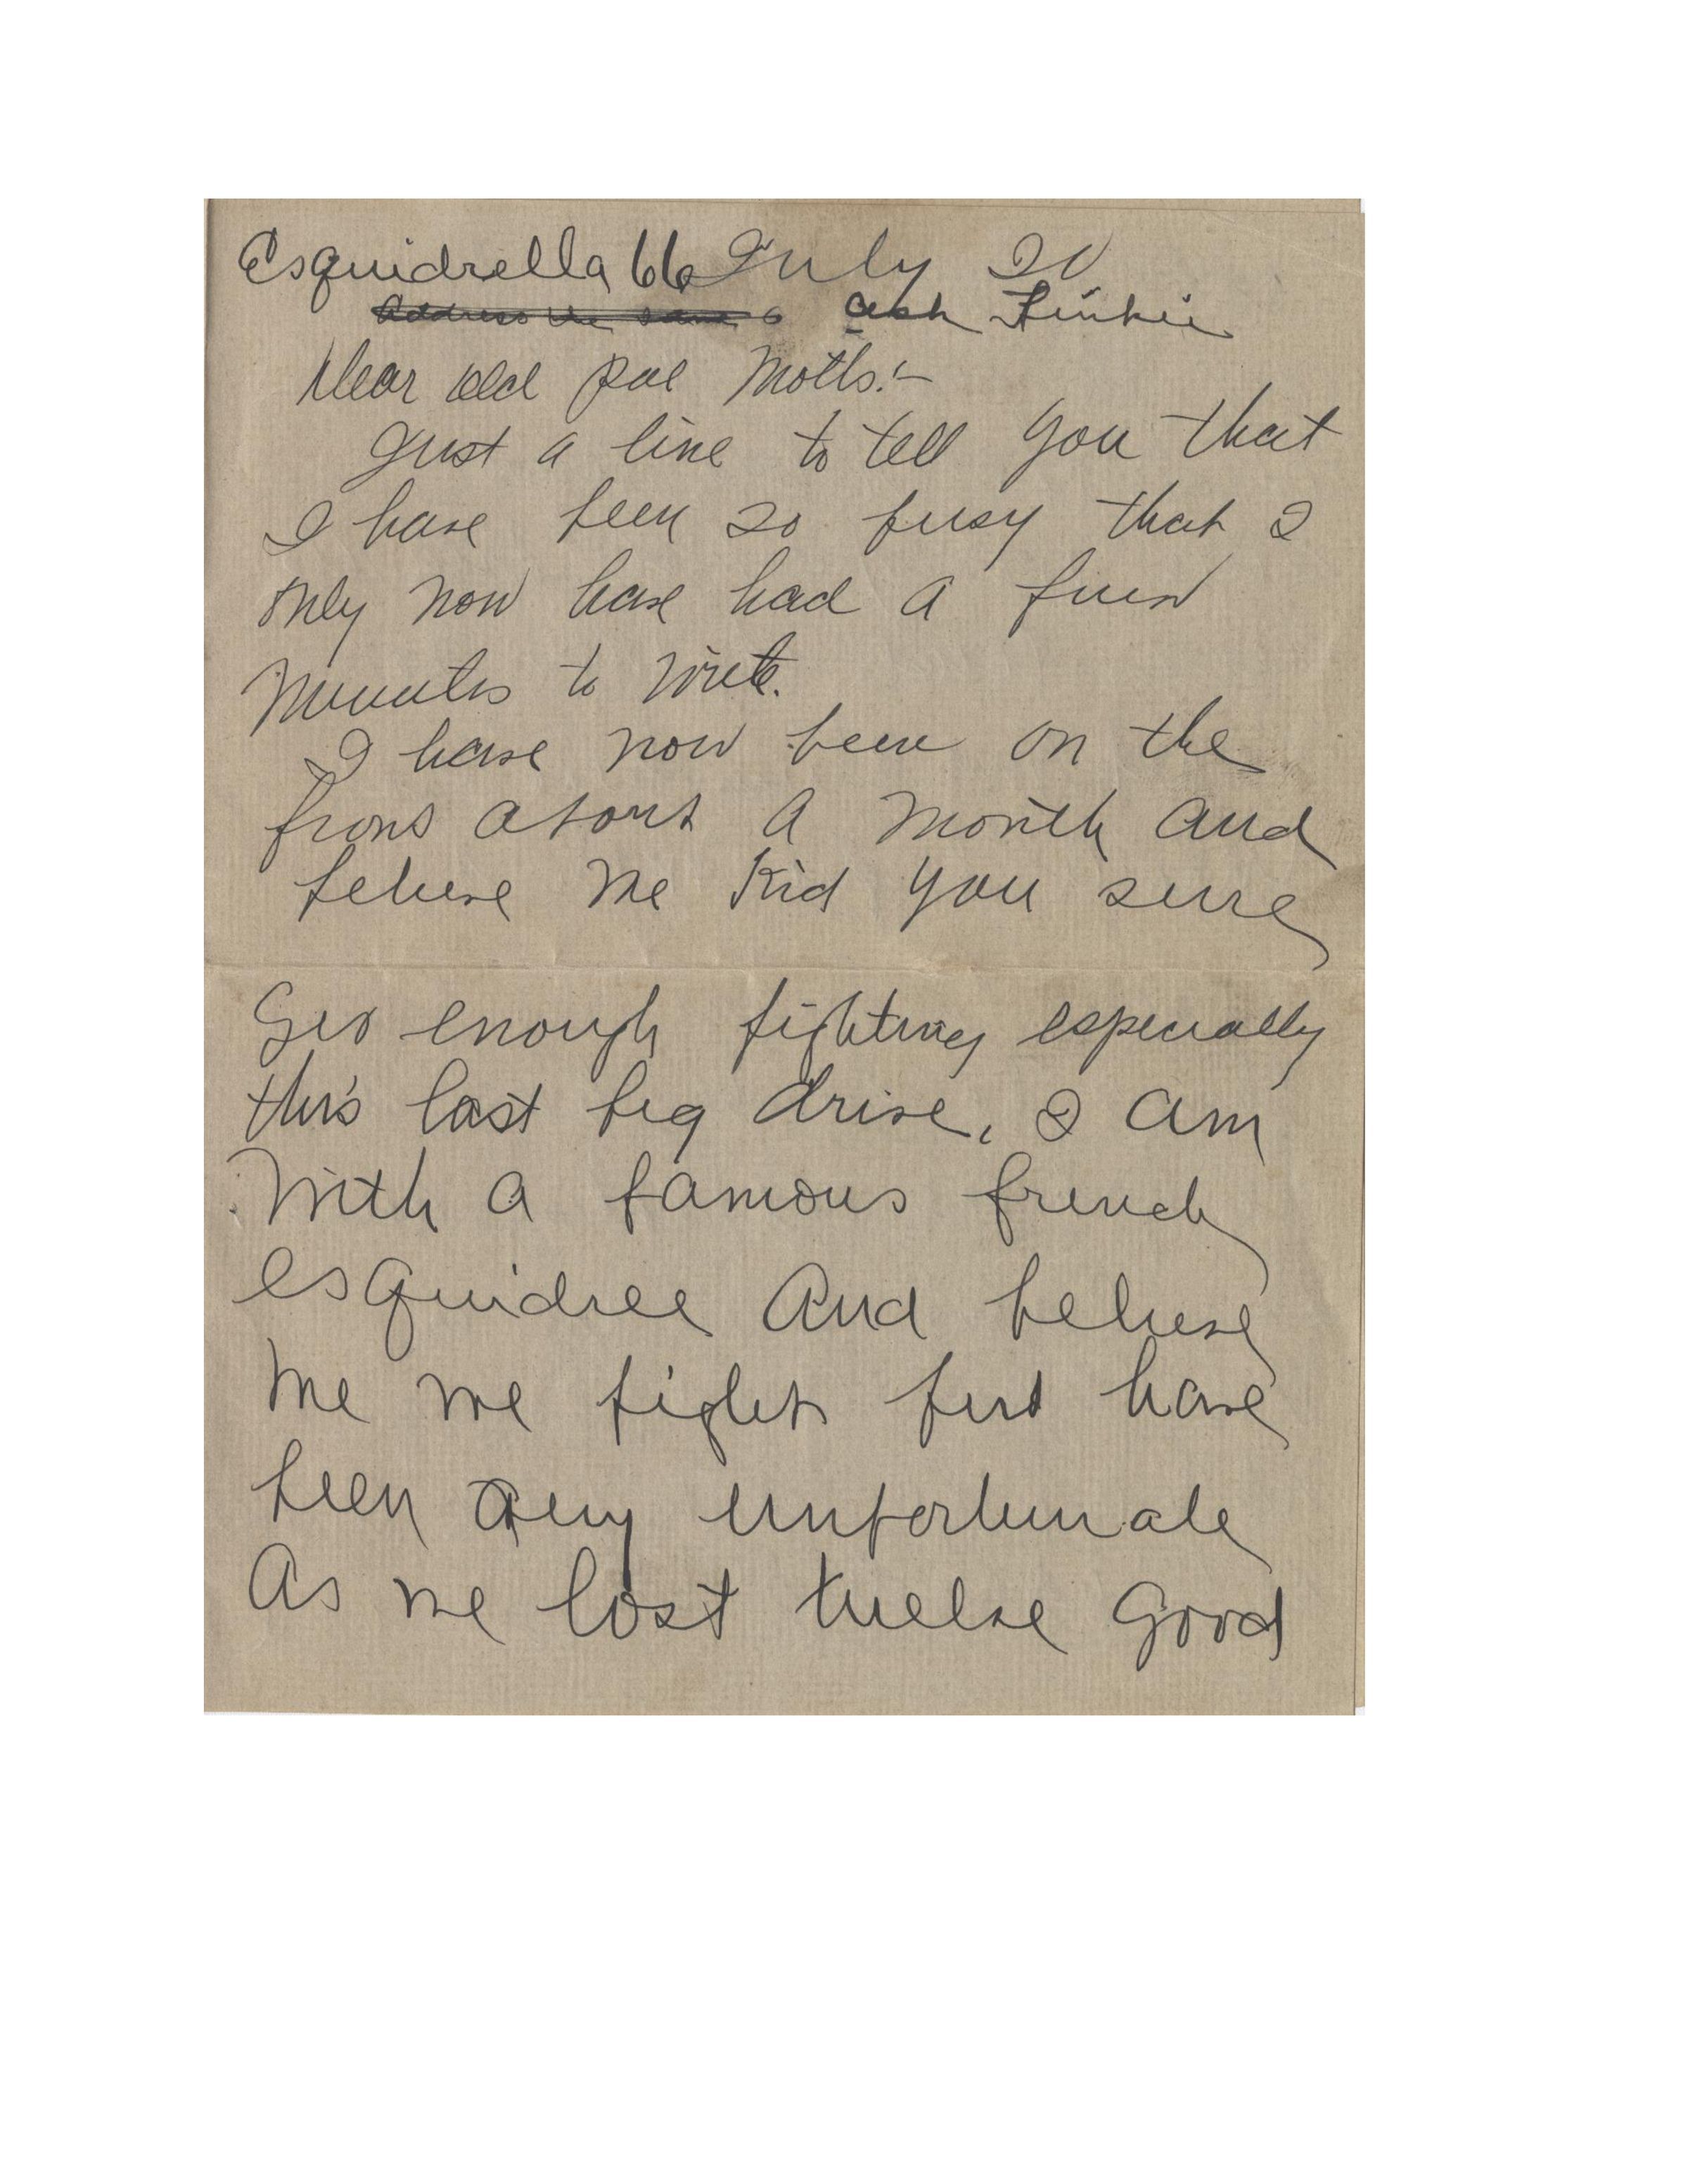 Esquidrella 66 July 20
Address the same ask Finkie
Dear old pal Motts:-
Just a line to tell you that
I have been so busy that I
only now have had a fiew
minutes to write.
I have now been on the
front about a month and
believe me Kid you sure
Get enough fighting especially
this last big drive, I am
with a famous french
esquidree and believe
me we fight but have
been any unfortunate
As we lost twelve good